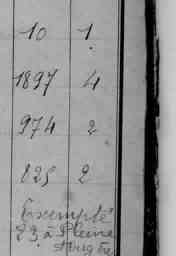 10 1
1897 4
974 2
825 2
Exempté
23 à Pleine